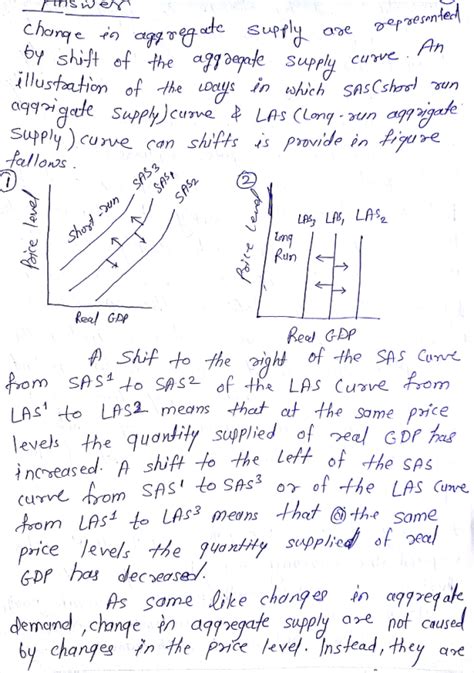 Answer
change in aggregate supply are represented
by shift of the aggregate supply curve. An
illustration of the ways in which SAS(short run
aggrigate supply)curve & LAS (Long-run aggrigate
supply) curve can shifts is provide in figure
fallows.
① ②
SAS3 SAS1 SAS2
Short-run
Price level
Real GDP
LAS3 LAS1 LAS2
Long
Run
Price Level
Real GDP
A Shif to the right of the SAS Curve
from SAS1 to SAS2 of the LAS Curve from
LAS1 to LAS2 means that at the same price
levels the quantity supplied of real GDP has
increased. A shift to the Left of the SAS
curve from SAS1 to SAS3 or of the LAS Curve
from LAS1 to LAS3 means that @ the same
price levels the quantity supplied of real
GDP has decreased.
As same like changes in aggregate
demand, change in aggregate supply are not caused
by changes in the price level. Instead, they are